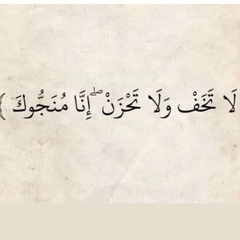 لَا تَخَفْ وَلَا تَحْزَنْ ۖ إِنَّا مُنَجُّوكَ ﴾